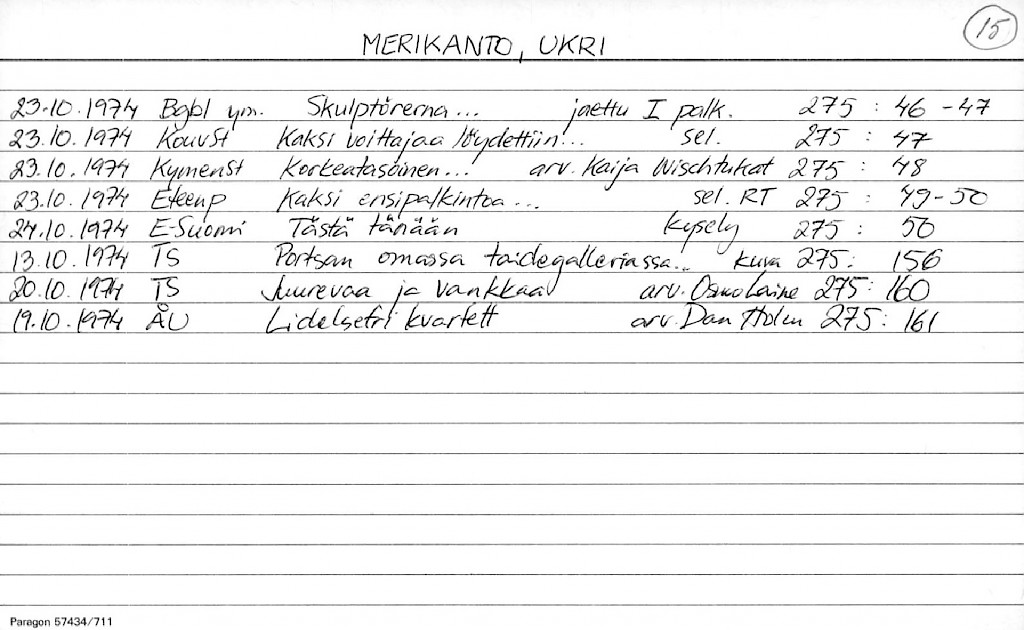 15
MERIKANTO, UKRI
23.10.1974 Bgbl ym. Skulptörerna... jaettu I palk. 275 : 46-47
23.10.1974 KouvSt Kaksi voittajaa löydettiin... sel. 275 : 47
23.10.1974 KymenSt Korkeatasoinen... arv. Kaija Nischtukat 275 : 48
23.10.1974 Eteenp Kaksi ensipalkintoa... sel. RT 275 : 49-50
24.10.1974 E-Suomi Tästä tänään kysely 275 : 50
13.10.1974 TS Portsan omassa taidegalleriassa.. kuva 275: 156
20.10.1974 TS Juurevaa ja vankkaa arv. Osmo Laine 275: 160
19.10.1974 ÅU kvartett arv. Dan Holm 275: 161
Paragon 57434/711